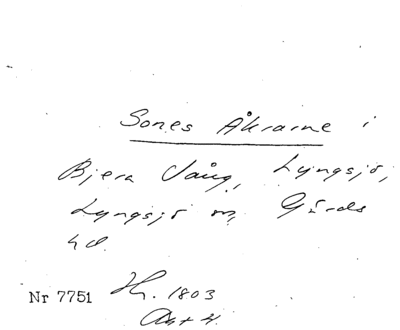 Sones Åkrarne i
Bjera Vång, Lyngsjö,
Lyngsjö sn, Gärds
hd.
Nr 7751 H. 1803
Akt 4.